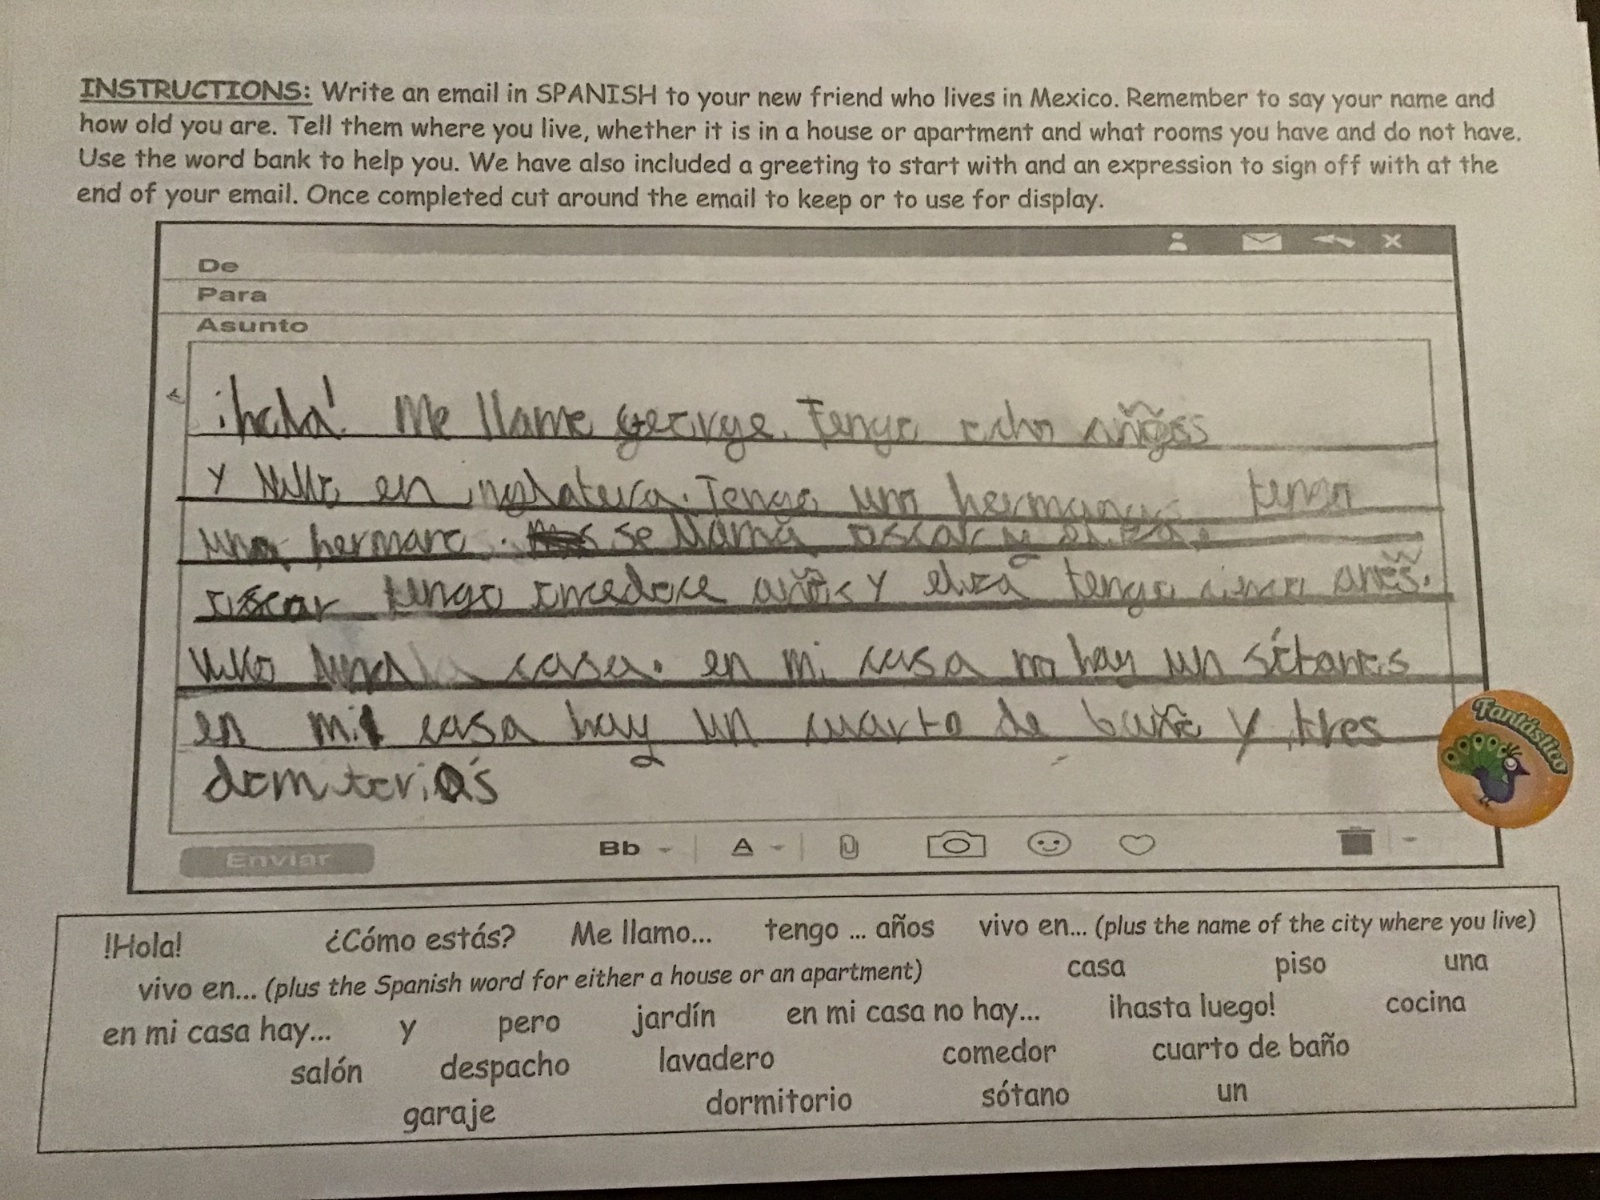 INSTRUCTIONS: Write an email in SPANISH to your new friend who lives in Mexico. Remember to say your name and
how old you are. Tell them where you live, whether it is in a house or apartment and what rooms you have and do not have.
Use the word bank to help you. We have also included a greeting to start with and an expression to sign off with at the
end of your email. Once completed cut around the email to keep or to use for display.
De
Para
Asunto
¡hola! Me llamo George. Tengo ocho años
y en inglatera. Tengo una hermana tengo
una hermano. se llama oscar y eliza.
oscar tengo doce años y eliza tengo años.
casa. en mi casa no hay un sótanos
en mi casa hay un cuarto de baño y tres
domitorios
Fantástico
Enviar
Bb A
!Hola! ¿Cómo estás? Me llamo... tengo ... años vivo en... (plus the name of the city where you live)
vivo en... (plus the Spanish word for either a house or an apartment) casa piso una
en mi casa hay... y pero jardín en mi casa no hay... ¡hasta luego! cocina
salón despacho lavadero comedor cuarto de baño
garaje dormitorio sótano un